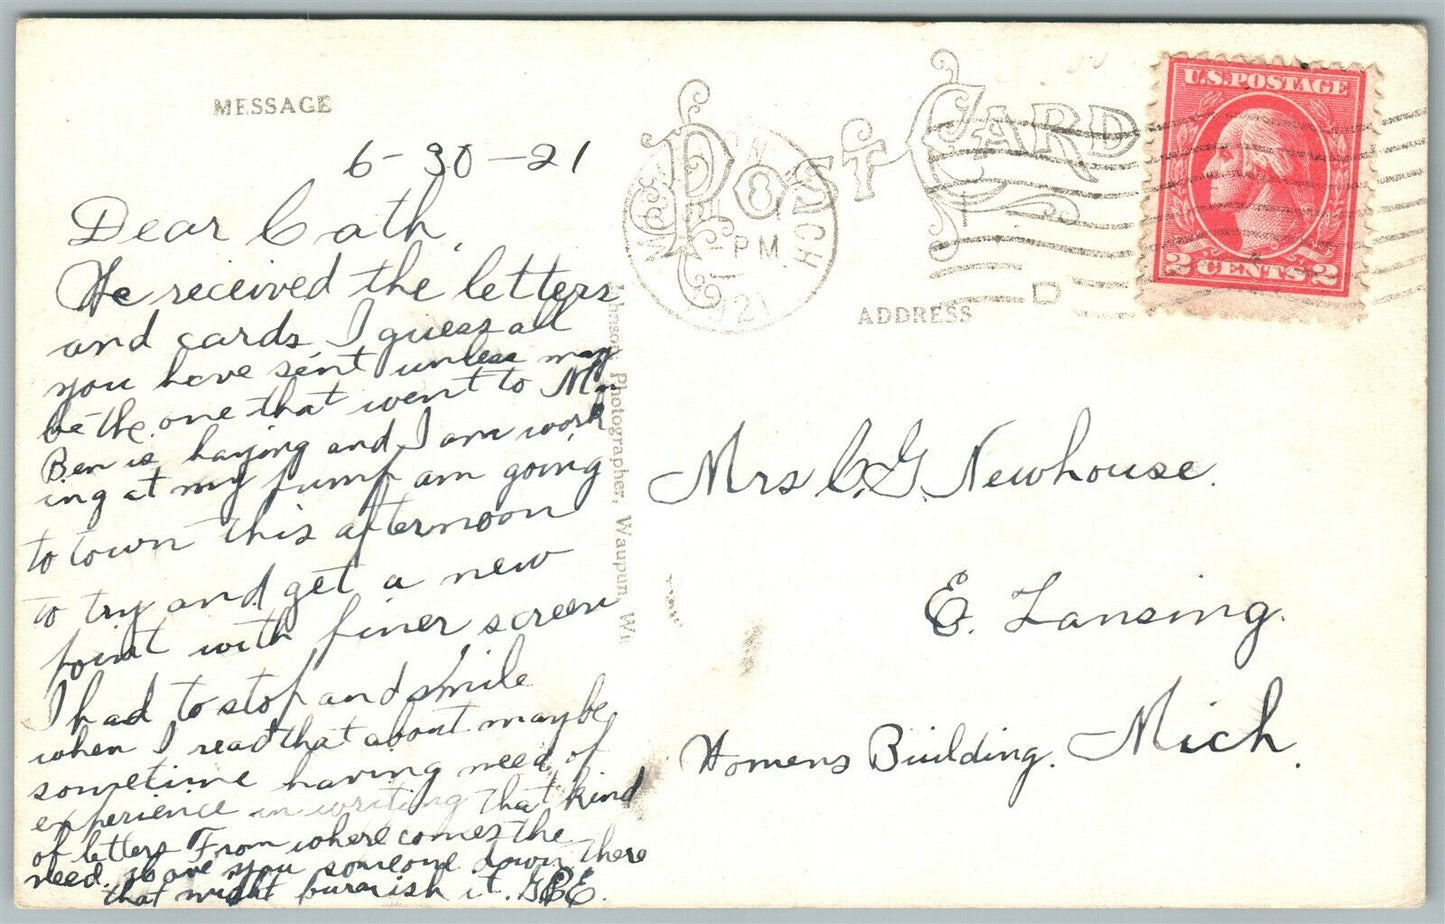 MESSAGE
6-30-21
Dear Cath,
We received the letters
and cards I guess all
you have sent unless may
be the one that went to
Ben is haying and I am work
ing at my pump am going
to town this afternoon
to try and get a new
point with finer screen
I had to stop and smile
when I read that about maybe
sometime having need of
experience in writing that kind
of letters From where comes the
need. Have you someone down there
that might furnish it.
POST CARD
8
PM
1
21
MICH
U.S. POSTAGE
2 CENTS 2
ADDRESS
Mrs C.G. Newhouse.
E. Lansing.
Mich.
Womens Building.
Photographer, Waupun, Wi